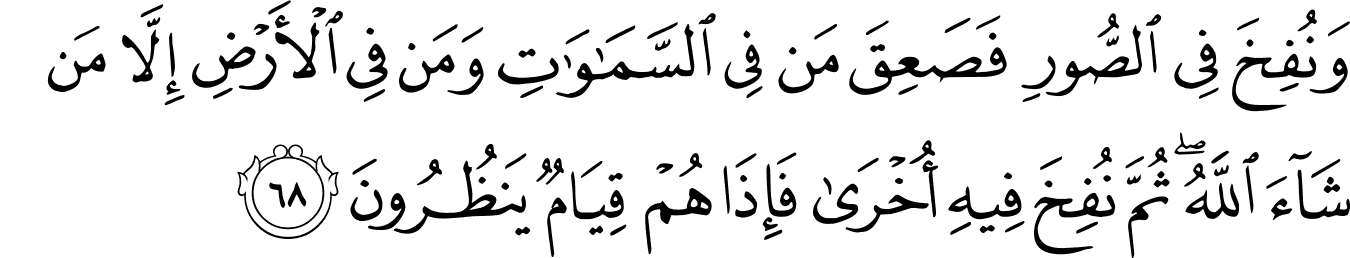 وَنُفِخَ فِى ٱلصُّورِ فَصَعِقَ مَن فِى ٱلسَّمَـٰوَٰتِ وَمَن فِى ٱلْأَرْضِ إِلَّا مَن
شَآءَ ٱللَّهُ ۖ ثُمَّ نُفِخَ فِيهِ أُخْرَىٰ فَإِذَا هُمْ قِيَامٌ يَنظُرُونَ ٦٨